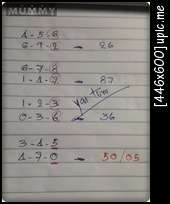 MUMMY
4-5-6
6-9-2 26
6-7-8
1-1-7 87
1-2-3
0-3-6 36
3-4-5
4-7-0 50/05
[446x600] upic.me